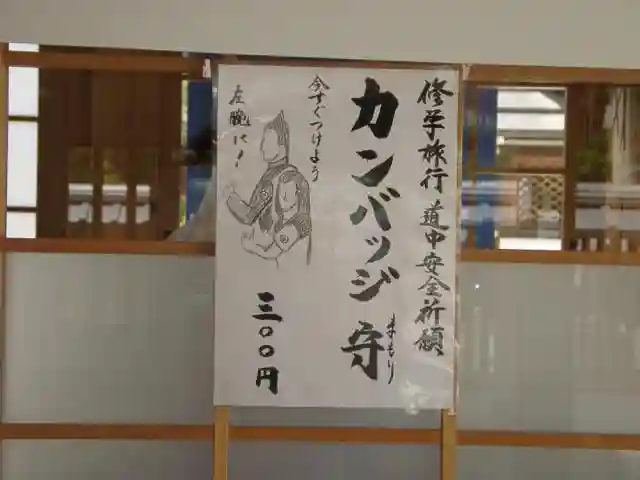 修学旅行 道中安全祈願
カンバッジ守
まもり
今すぐつけよう
左腕に!
三〇〇円